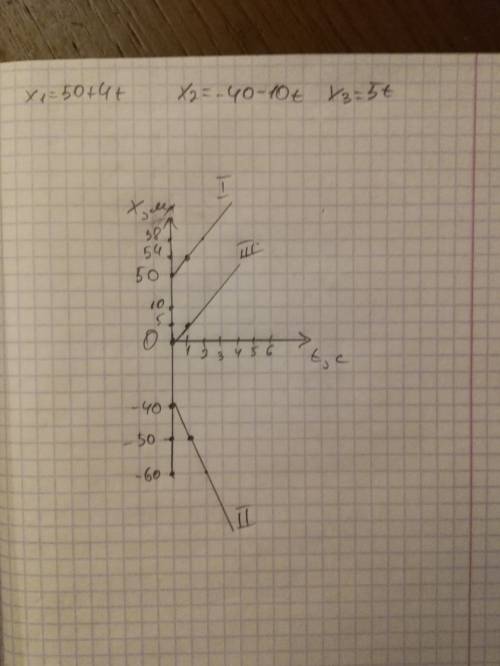 x1=50+4t x2=-40-10t x3=5t
I
x,м
38
III
54
50
10
5
0
1 2 3 4 5 6
t, c
-40
-50
-60
II